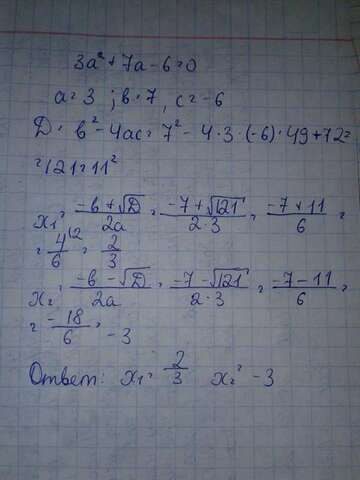 3a² + 7a - 6 = 0
a = 3 ; в = 7, c = -6
D = в² - 4ac = 7² - 4·3·(-6) = 49 + 72 =
= 121 = 11²
x₁ = (-в + √D)/2a = (-7 + √121)/2·3 = (-7 + 11)/6 =
= 4/6 |2 = 2/3
x₂ = (-в - √D)/2a = (-7 - √121)/2·3 = (-7 - 11)/6 =
= -18/6 = -3
Ответ: x₁ = 2/3 x₂ = -3